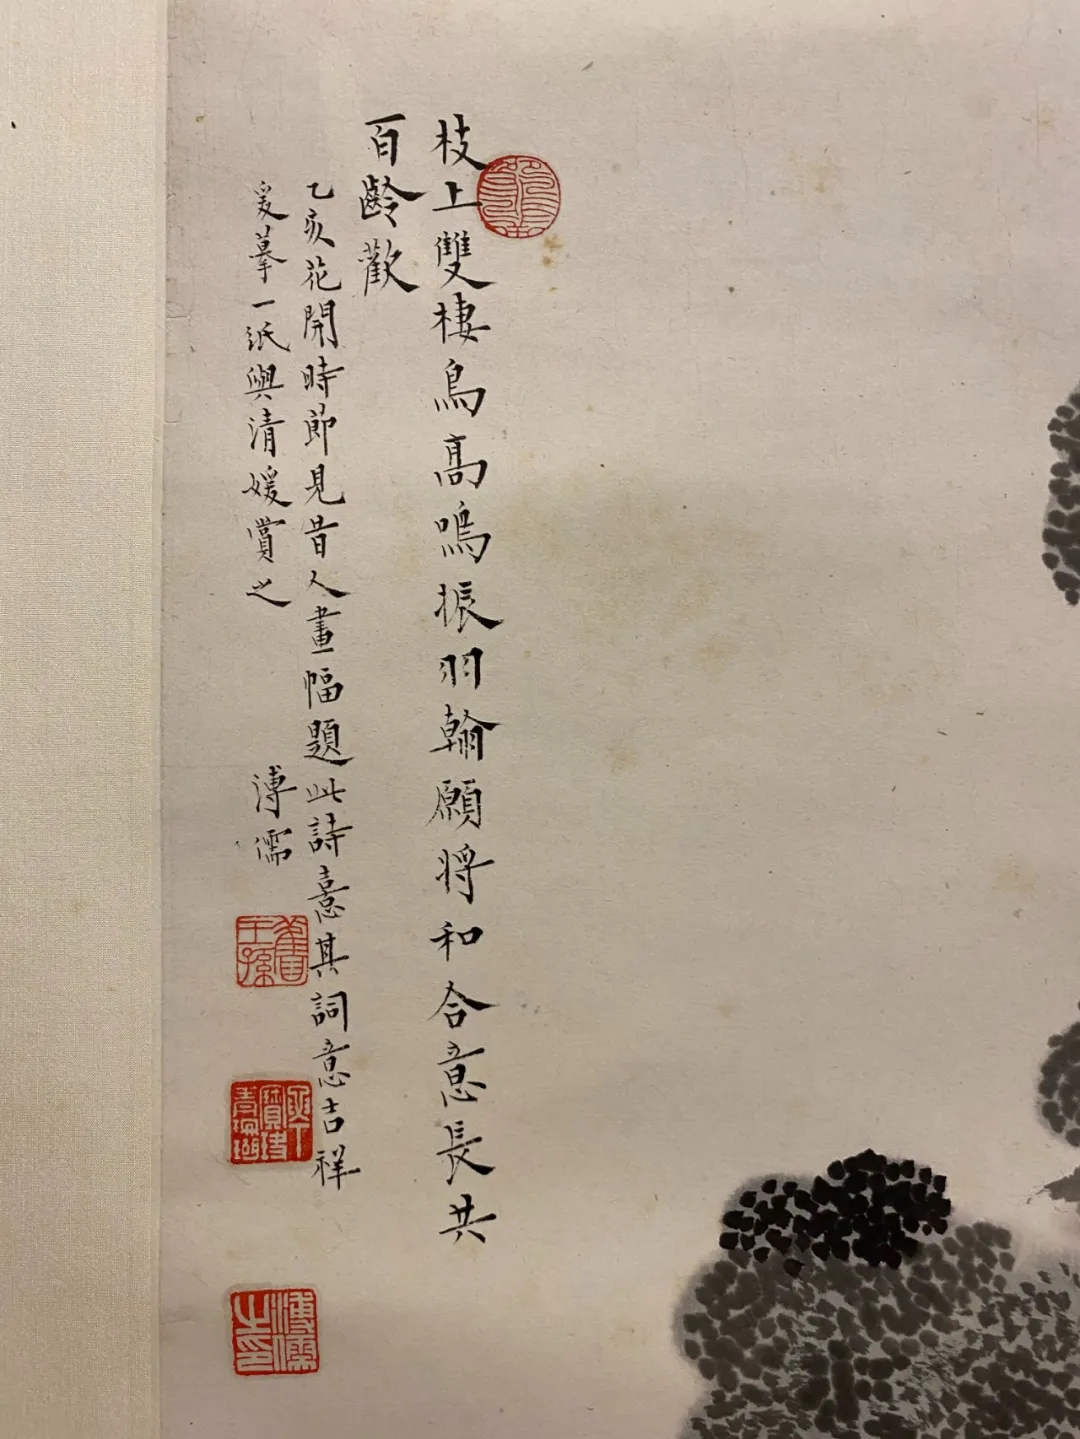 枝上雙棲鳥高鳴振羽翰願將和合意長共
百齡歡
乙亥花開時節見昔人畫幅題此詩意其詞意吉祥
爰摹一紙與清媛賞之
溥儒
舊王孫
溥儒之印